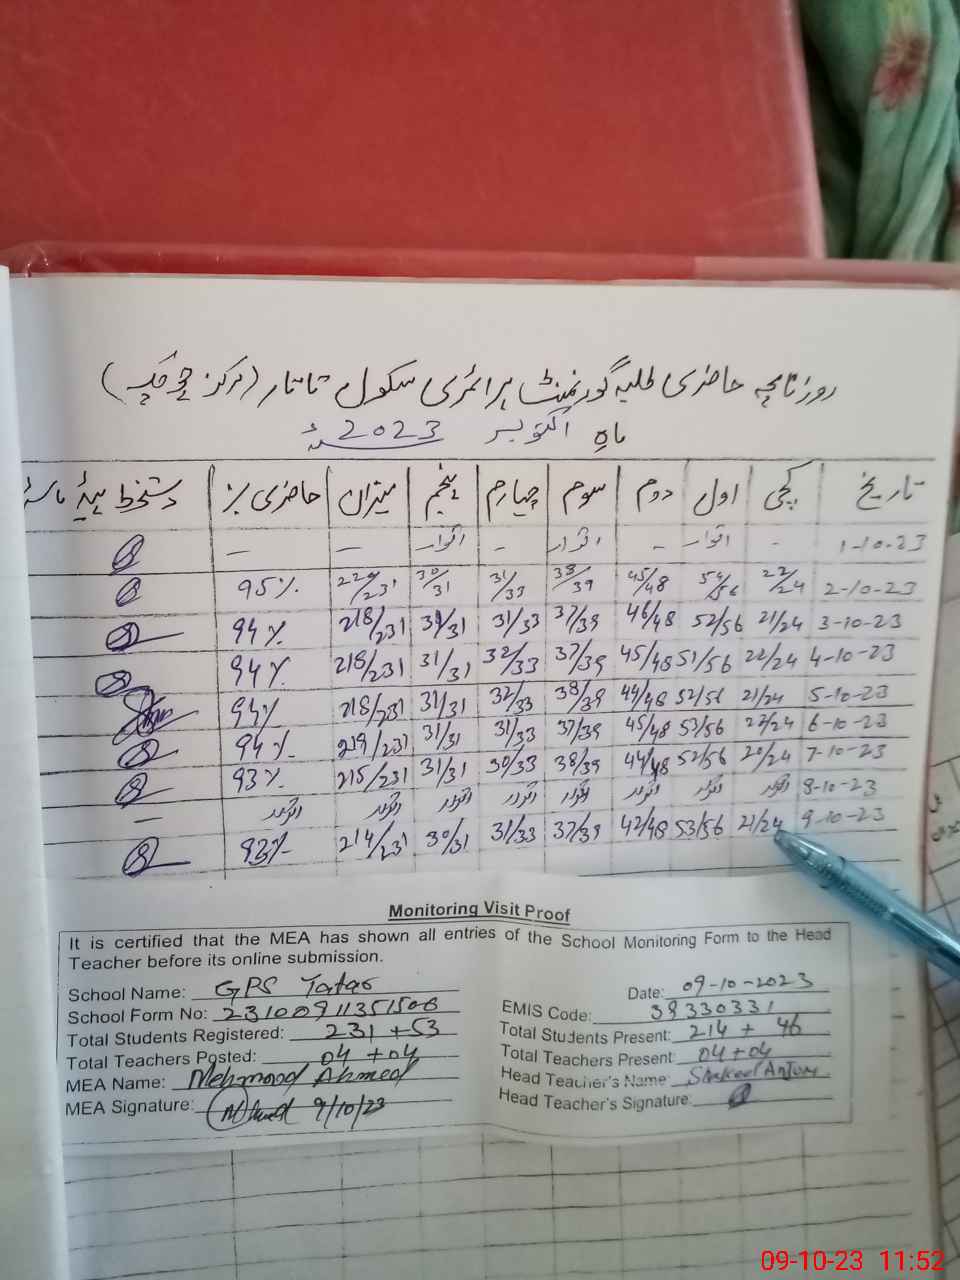 روزنامچہ حاضری طلبہ گورنمنٹ پرائمری سکول تاتار (مرکز چوکیہ)
ماہ اکتوبر 2023ء
تاریخ کچی اول دوم سوم چہارم پنجم میزان حاضری٪ دستخط ہیڈ
1-10-23 - اتوار - اتوار - اتوار — —
2-10-23 22/24 54/56 45/48 38/39 31/33 30/31 220/231 95%
3-10-23 21/24 52/56 46/48 37/39 31/33 31/31 218/231 94%
4-10-23 22/24 51/56 45/48 37/39 32/33 31/31 218/231 94%
5-10-23 21/24 52/56 44/48 38/39 32/33 31/31 218/231 94%
6-10-23 22/24 53/56 45/48 37/39 31/33 31/31 219/231 94%
7-10-23 20/24 52/56 44/48 38/39 30/33 31/31 215/231 93%
8-10-23 اتوار اتوار اتوار اتوار اتوار اتوار اتوار اتوار —
9-10-23 21/24 53/56 42/48 37/39 31/33 30/31 214/231 93%
Monitoring Visit Proof
It is certified that the MEA has shown all entries of the School Monitoring Form to the Head
Teacher before its online submission.
School Name: GPS Tatar Date: 09-10-2023
School Form No: 23100911351506 EMIS Code: 38330331
Total Students Registered: 231 + 53 Total Students Present: 214 + 46
Total Teachers Posted: 04 + 04 Total Teachers Present: 04 + 04
MEA Name: Mehmood Ahmed Head Teacher's Name: Shakeel Anjum
MEA Signature: 9/10/23 Head Teacher's Signature:
09-10-23 11:52